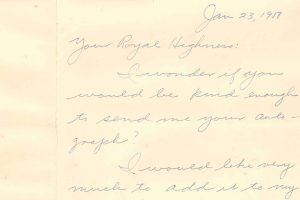 Jan 23, 19
Your Royal Highness:
I wonder if you
would be kind enough
to send me your auto-
graph?
I would like very
much to add it to my